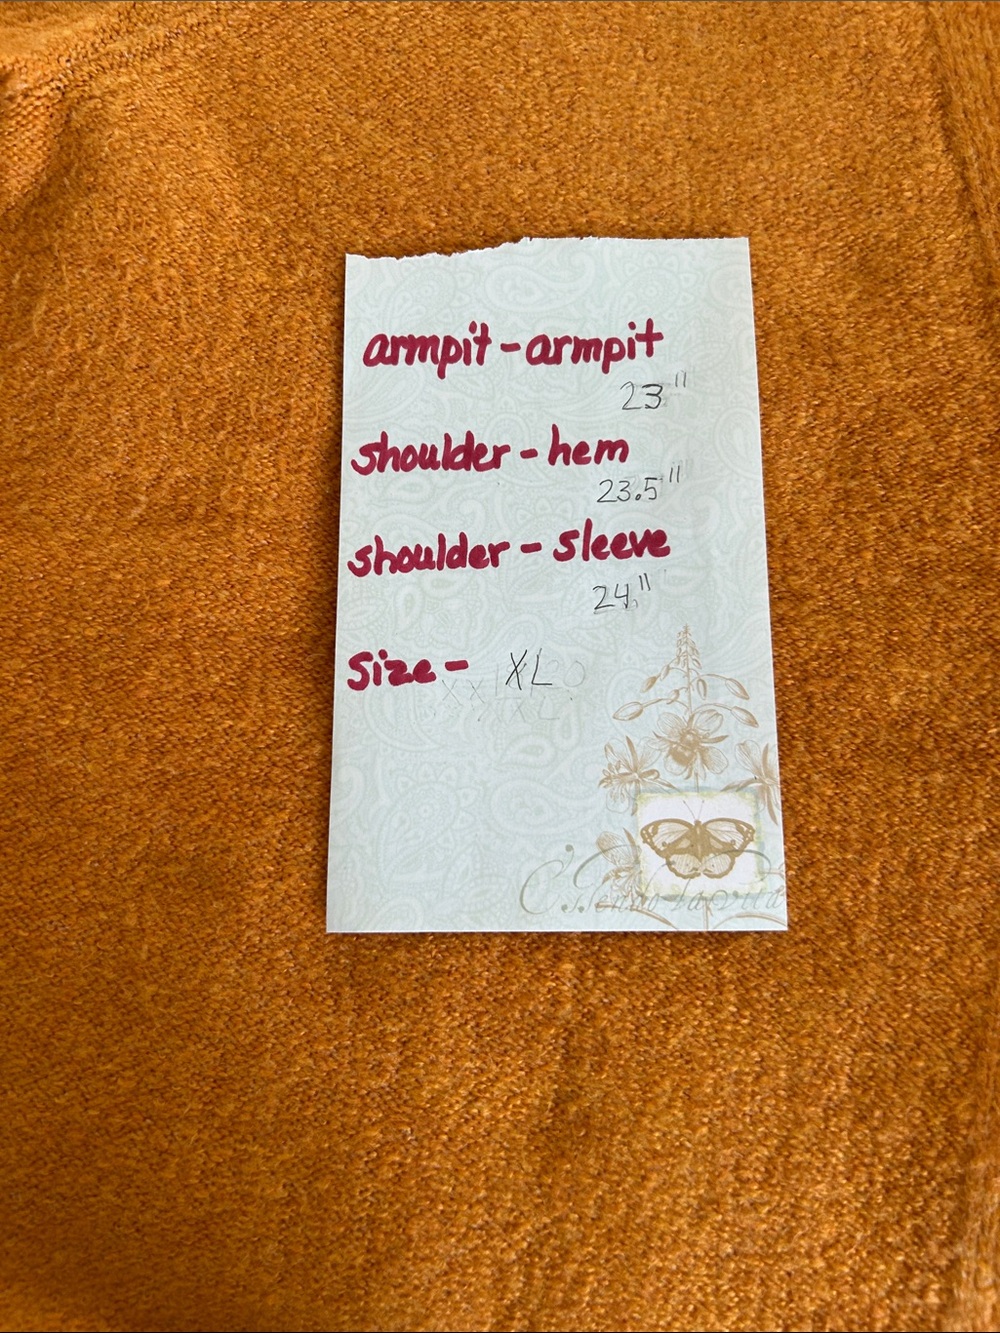 armpit - armpit
23"
shoulder - hem
23.5"
shoulder - sleeve
24"
size - XL